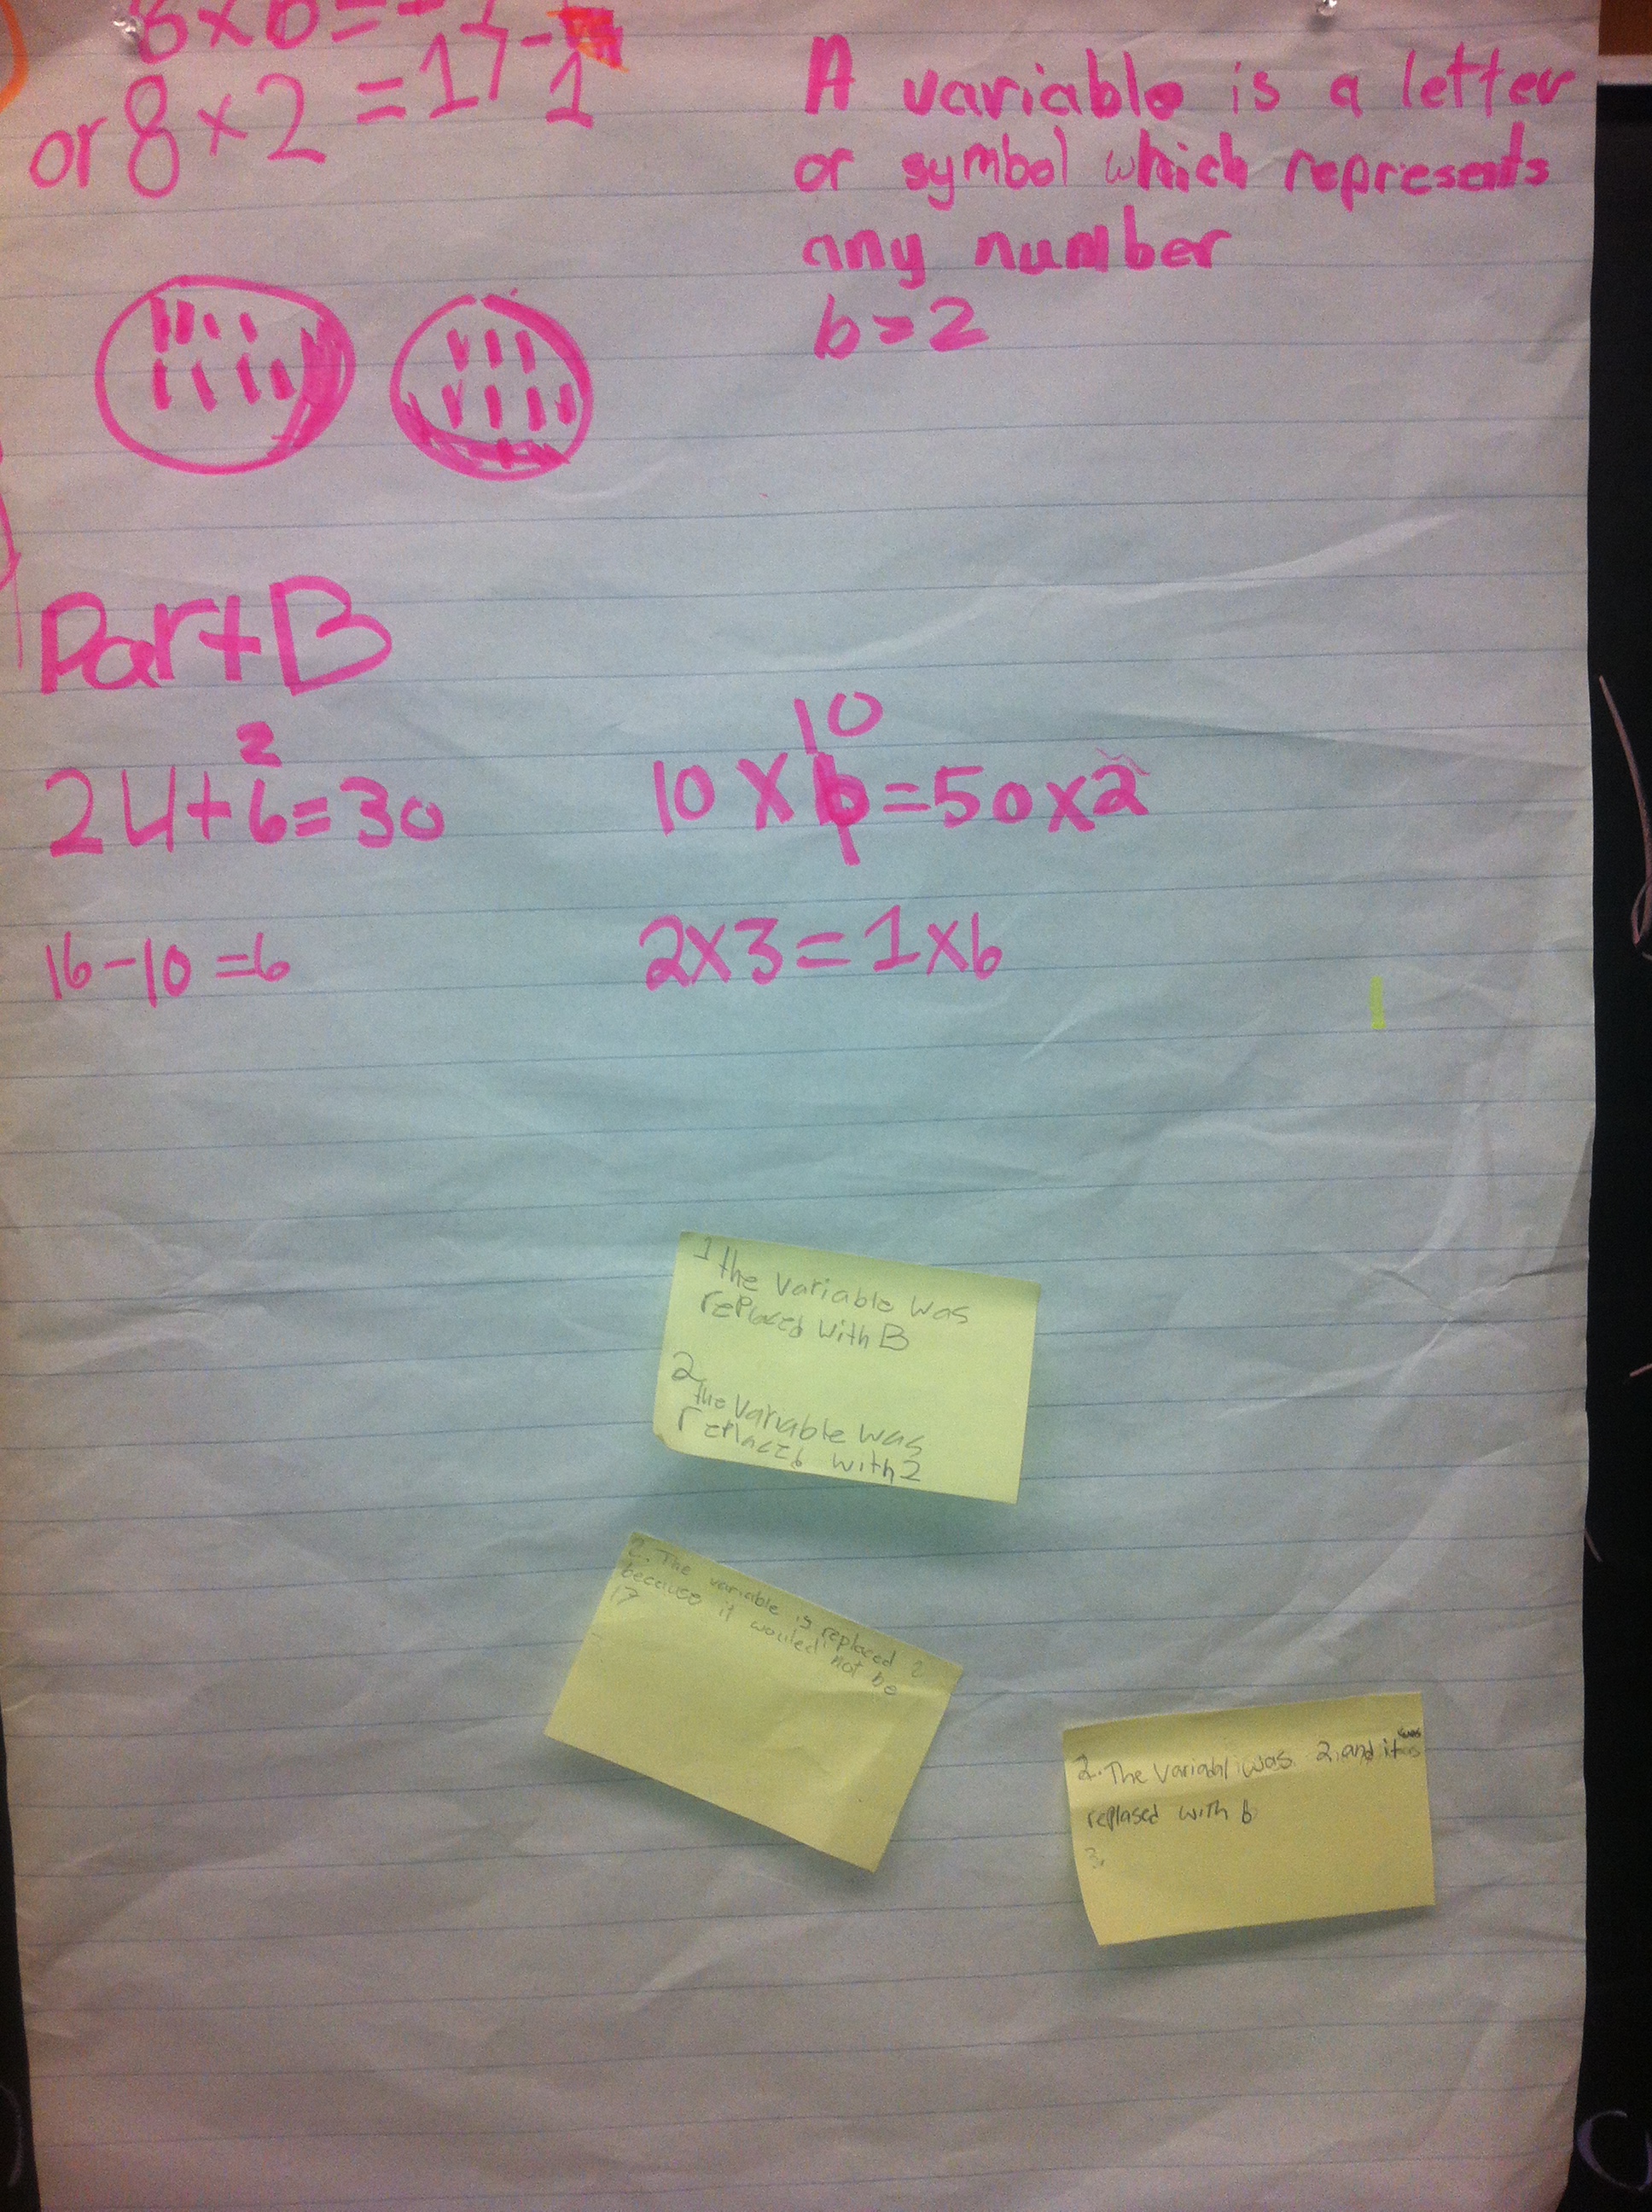 8xb=
or 8x2=17-1
A variable is a letter
or symbol which represents
any number
b=2
Part B
2
24+6=30
16-10=6
10
10xb=50x2
2x3=1x6
1 the variable was
replaced with B
2
the variable was
replaced with 2
2. The variable is replaced 2
because it wouled not be
17
2. The variabl was 2, and it was
replased with b
3.